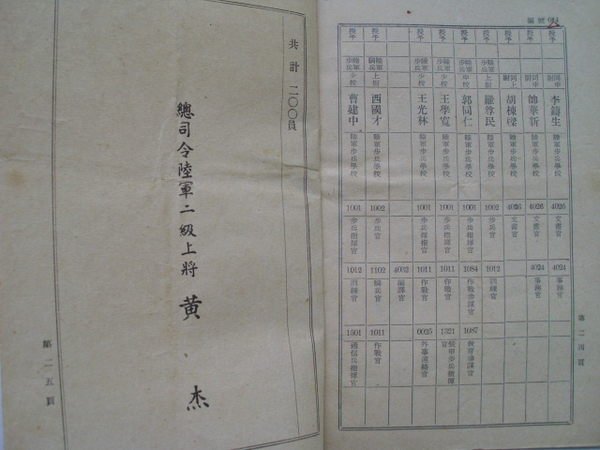 編號
授予
李鑄生
陸軍步兵學校
4026
文書官
4024
事務官
授予
陸軍步兵學校
4026
文書官
4024
事務官
授予
胡棟樑
陸軍步兵學校
4026
文書官
授予
上尉
羅尊民
陸軍步兵學校
1002
步兵官
1012
訓練官
授予
陸軍步兵
中校
郭同仁
陸軍步兵學校
1001
步兵指揮官
1084
作戰參謀官
1087
教育參謀官
授予
陸軍步兵
少校
王學寬
陸軍步兵學校
1001
步兵指揮官
1011
作戰官
1321
裝甲步兵指揮官
授予
陸軍步兵
少校
王光林
陸軍步兵學校
1001
步兵指揮官
1011
作戰官
0025
外事連絡官
4032
編譯官
授予
上尉
西國才
陸軍步兵學校
1002
步兵官
1102
1011
作戰官
授予
陸軍步兵
少校
曹建中
陸軍步兵學校
1001
步兵指揮官
1012
訓練官
1501
通信兵指揮官
第二四頁
共計二〇〇員
總司令陸軍二級上將 黃杰
第二五頁